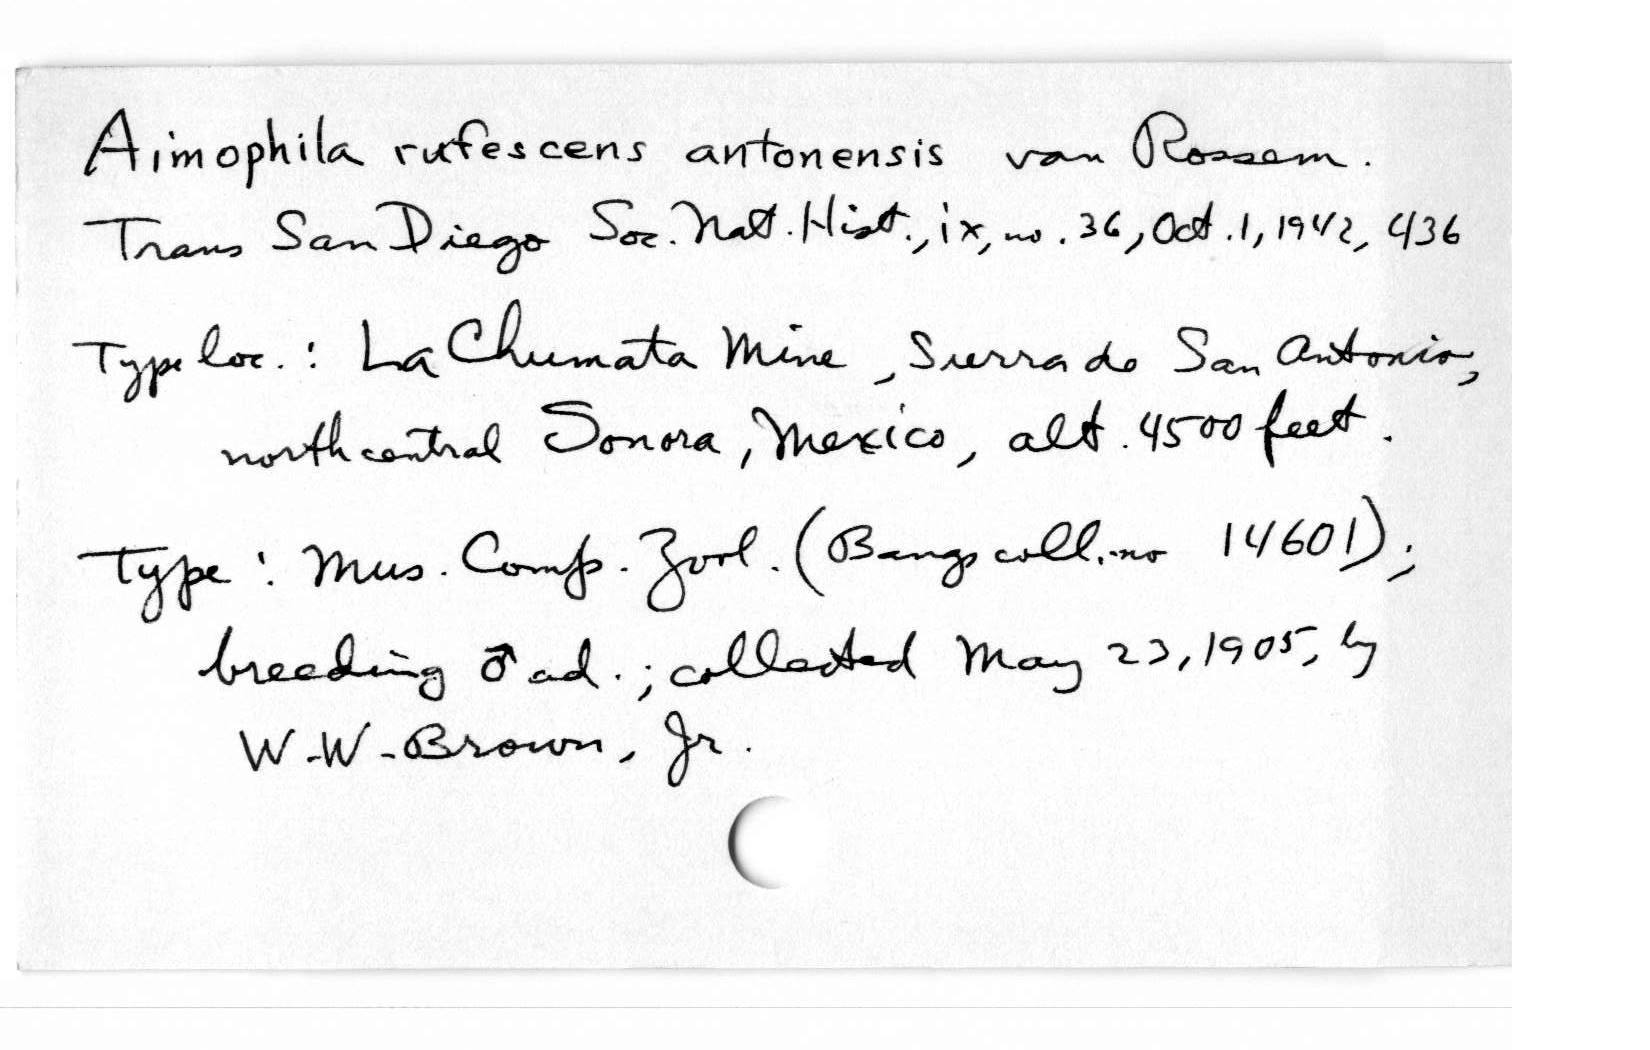 Aimophila rufescens antonensis van Rossem.
Trans San Diego Soc. Nat. Hist., ix, no. 36, Oct. 1, 1942, 436
Type loc.: La Chumata Mine, Sierra de San Antonio,
north central Sonora, Mexico, alt. 4500 feet.
Type: Mus. Comp. Zool. (Bangs coll. no 14601);
breeding ♂ ad.; collected May 23, 1905, by
W. W. Brown, Jr.